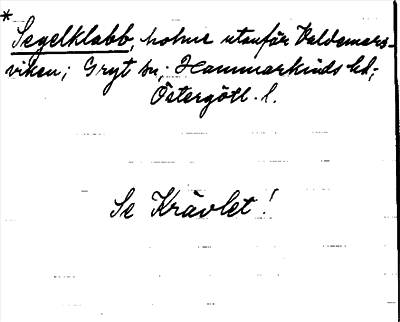 * Segelklabb, holme utanför Valdemars-
viken; Gryt sn; Hammarkinds hd;
Östergötl. l.
Se Krävlet!